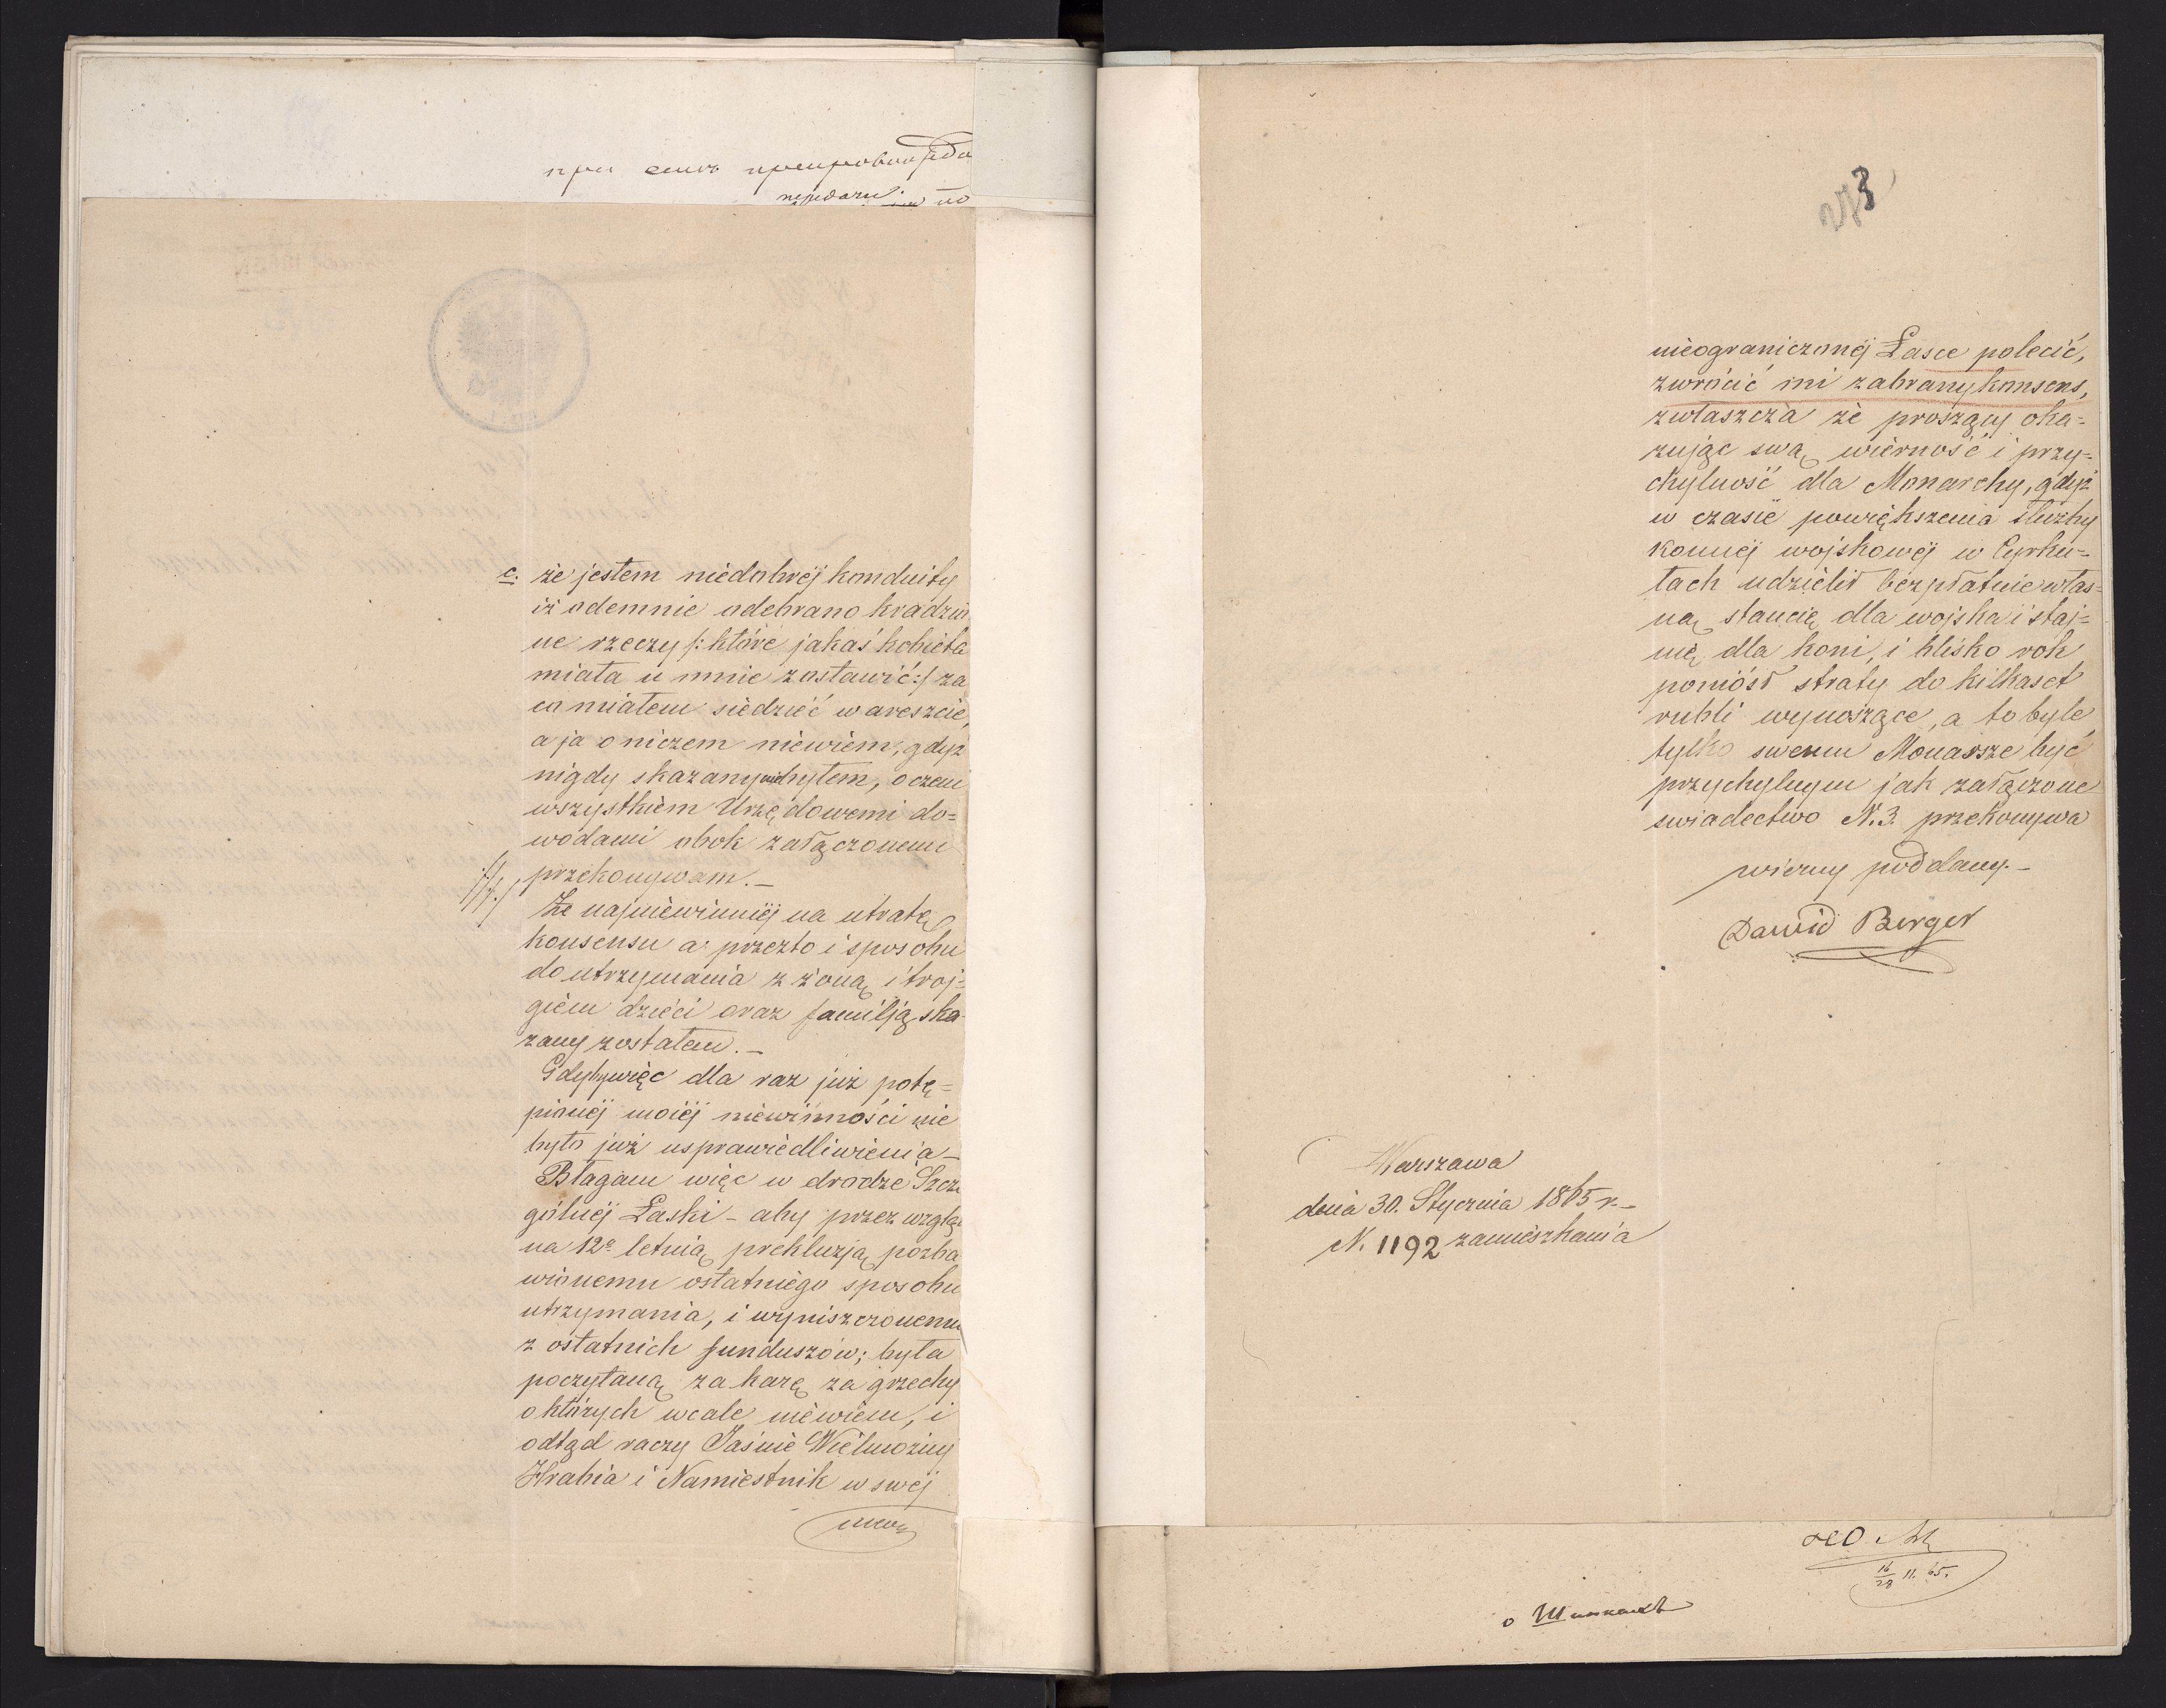 при семъ препровожда
передачи по
c. że jestem niedobréj konduity
iż odemnie odebrano kradzio
ne rzeczy /: które jakaś kobieta
miała u mnie zostawić :/ za
co miałem siedzieć w areszcie,
a ja o niczem niewiem, gdyż
nigdy skazany nie byłem, o czem
wszystkiem Urzędowemi do=
wodami obok załączonemi
przekonywam. —
Że najniewinniéj na utratę
konsensu a przezto i sposobu
do utrzymania z żoną i troj=
giem dzieci oraz familją ska=
zany zostałem. —
Gdyby więc dla raz już potę=
pionéj moiéj niewinności nie
było już usprawiedliwienia —
Błagam więc w drodze Szcze
gólnéj Łaski – aby przez wzglą
na 12o letnią prekluzją pozba
wionemu ostatniego sposobu
utrzymania, i wyniszczonemu
z ostatnich funduszów; była
poczytaną za karę za grzechy
o których wcale niewiem, i
odtąd raczy Jaśnie Wielmożny
Hrabia i Namiestnik w swéj
3
nieograniczonéj Łasce polecić,
zwrócić mi zabrany konsens,
zwłaszcza że proszący oka=
zując swą wierność i przy=
chylność dla Monarchy, gdyż
w czasie powiększenia służby
konnéj wojskowéj w Cyrku=
łach udzielił bezpłatnie włas=
ną stancię dla wojska i staj=
nię dla koni, i blisko rok
poniósł straty do kilkaset
rubli wynoszące, a to byle
tylko swemu Monarsze być
przychylnym jak załączone
swiadectwo N. 3. przekonywa
wierny poddany. —
Dawid Berger
Warszawa
dnia 30. Stycznia 1865 r. —
N. 1192 zamieszkania
16/28 11. 65.
о Шинкахъ